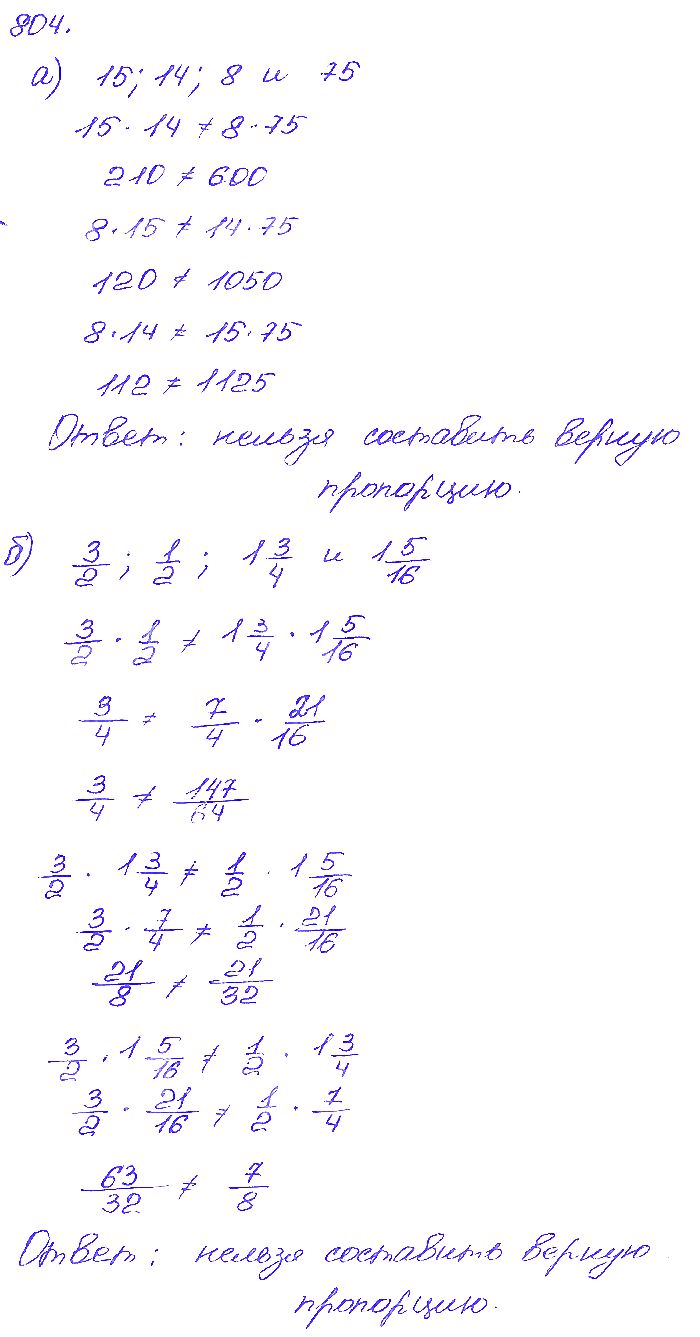 804.
а) 15; 14; 8 и 75
15 · 14 ≠ 8 · 75
210 ≠ 600
8 · 15 ≠ 14 · 75
120 ≠ 1050
8 · 14 ≠ 15 · 75
112 ≠ 1125
Ответ: нельзя составить верную
пропорцию.
б) 3/2; 1/2; 1 3/4 и 1 5/16
3/2 · 1/2 ≠ 1 3/4 · 1 5/16
3/4 ≠ 7/4 · 21/16
3/4 ≠ 147/64
3/2 · 1 3/4 ≠ 1/2 · 1 5/16
3/2 · 7/4 ≠ 1/2 · 21/16
21/8 ≠ 21/32
3/2 · 1 5/16 ≠ 1/2 · 1 3/4
3/2 · 21/16 ≠ 1/2 · 7/4
63/32 ≠ 7/8
Ответ: нельзя составить верную
пропорцию.